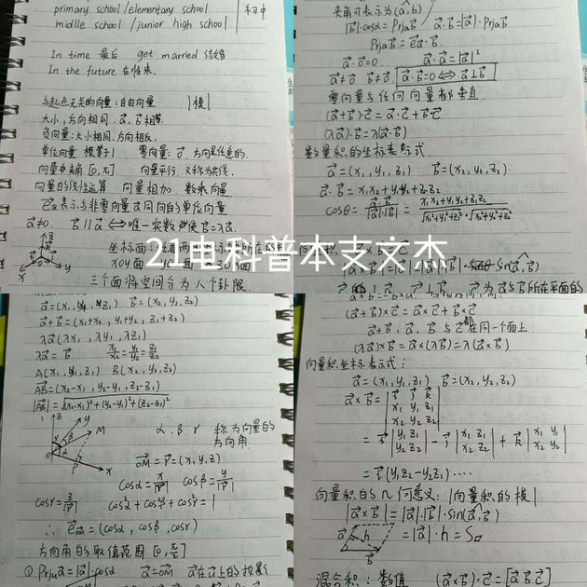 primary school / elementary school
middle school / junior high school
初中
In time 最后 get married 结婚
In the future 在将来
与起点无关的向量:自由向量 |模|
大小,方向相同
负向量:大小相同,方向相反
单位向量 模等于1 零向量:0⃗ 方向是任意的
向量夹角 [0,π] 向量平行,又称为共线
向量的线性运算 向量相加 数乘向量
表示与非零向量a⃗同向的单位向量
a⃗≠0 b⃗∥a⃗ ⟺ 唯一实数λ使b⃗=λa⃗
坐标面:
xoy面
三个面将空间分为八个卦限
a⃗=(x₁,y₁,z₁) b⃗=(x₂,y₂,z₂)
a⃗+b⃗=(x₁+x₂,y₁+y₂,z₁+z₂)
λa⃗(λx₁,λy₁,λz₁)
λa⃗=b⃗ x₁/x₂=y₁/y₂=z₁/z₂
A(x₁,y₁,z₁) B(x₂,y₂,z₂)
AB⃗=(x₂-x₁,y₂-y₁,z₂-z₁)
|AB⃗|=√(x₂-x₁)²+(y₂-y₁)²+(z₂-z₁)²
z y M
α,β,γ 称为向量的
方向角
O x
OM⃗=r⃗=(x,y,z)
cosα=x/|r⃗| cosβ=y/|r⃗|
cosγ=z/|r⃗| cos²α+cos²β+cos²γ=1
∴ e⃗OM=(cosα,cosβ,cosγ)
方向角的取值范围
① Prjuа⃗=|a⃗|·cosα a⃗=OM⃗ a⃗在u上的投影
夹角可表示为(a⃗,b⃗)
|b⃗|cosα=Prjab⃗ a⃗·b⃗=|a⃗|·Prjab⃗
Prjab⃗=e⃗a·b⃗
a⃗·0⃗=0 a⃗·a⃗=|a⃗|²
a⃗≠0 b⃗≠0 a⃗·b⃗=0⟺a⃗⊥b⃗
零向量与任何向量都垂直
(a⃗+b⃗)·c⃗=a⃗·c⃗+b⃗·c⃗
(λa⃗)·b⃗=λ(a⃗·b⃗)
数量积的坐标表示式
a⃗=(x₁,y₁,z₁) b⃗=(x₂,y₂,z₂)
a⃗·b⃗=x₁x₂+y₁y₂+z₁z₂
cosθ=a⃗·b⃗/|a⃗||b⃗|=x₁x₂+y₁y₂+z₁z₂/√x₁²+y₁²+z₁²·√x₂²+y₂²+z₂²
21电科普本支文杰
(a⃗+b⃗)×c⃗=a⃗×c⃗+b⃗×c⃗
a⃗+b⃗,a⃗,b⃗与c⃗都在同一个面上
(λa⃗)×b⃗=a⃗×(λb⃗)=λ(a⃗×b⃗)
向量积坐标表示式:
a⃗=(x₁,y₁,z₁) b⃗=(x₂,y₂,z₂)
a⃗×b⃗=|i⃗ j⃗ k⃗|
x₁ y₁ z₁
x₂ y₂ z₂
=i⃗|y₁ z₁ y₂ z₂|-j⃗|x₁ z₁ x₂ z₂|+k⃗|x₁ y₁ x₂ y₂|
=i⃗(y₁z₂-y₂z₁)····
向量积的几何意义:|向量积的模|
|a⃗×b⃗|=|a⃗|·|b⃗|·sin(a⃗,b⃗)
=|a⃗|·h=S▱
混合积:数值 (a⃗×b⃗)·c⃗=[a⃗b⃗c⃗]